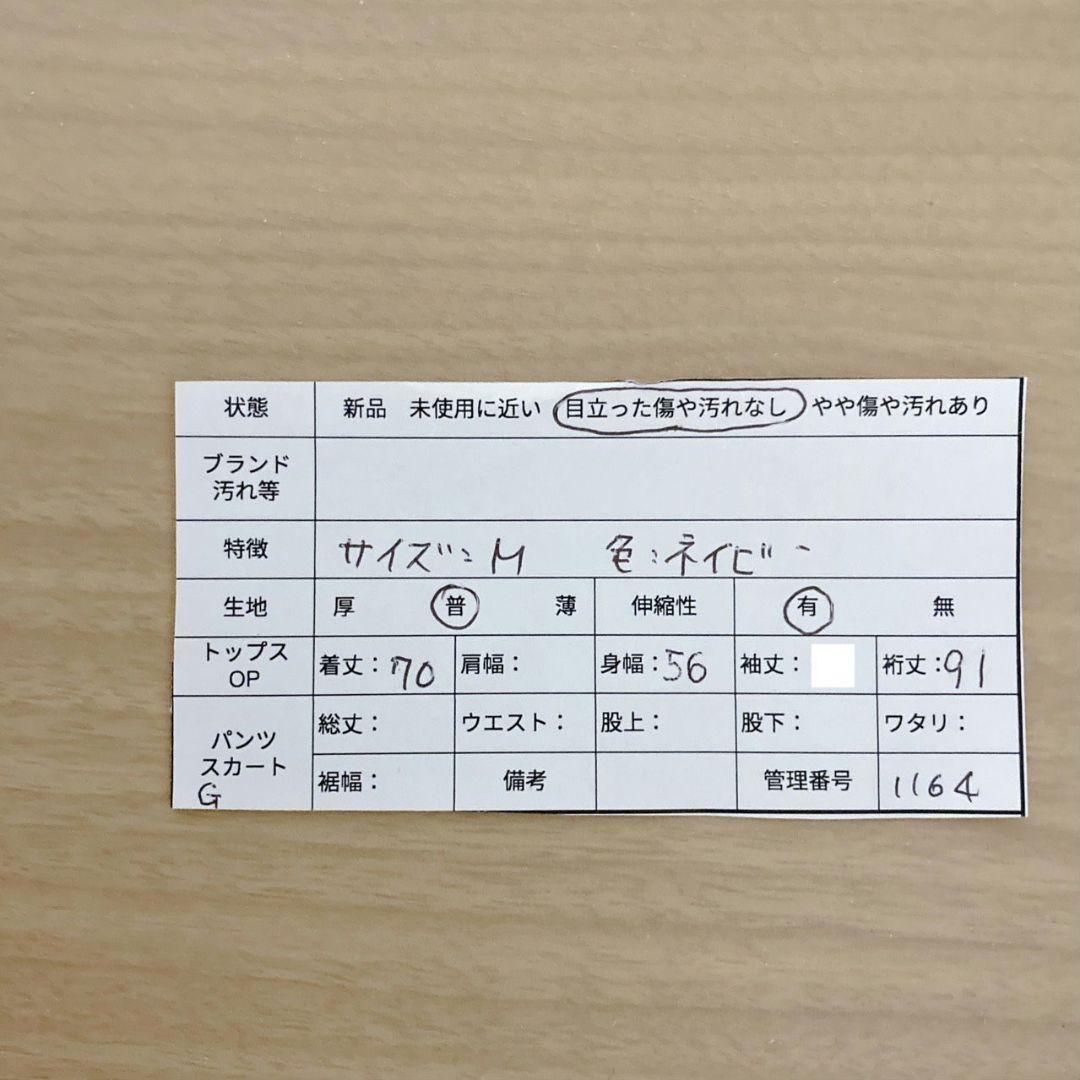 状態 新品 未使用に近い 目立った傷や汚れなし やや傷や汚れあり
ブランド
汚れ等
特徴 サイズ:M 色:ネイビー
生地 厚 普 薄 伸縮性 有 無
トップス
OP
着丈:70 肩幅: 身幅:56 袖丈: 裄丈:91
パンツ
スカート
G
総丈: ウエスト: 股上: 股下: ワタリ:
裾幅: 備考 管理番号 1164